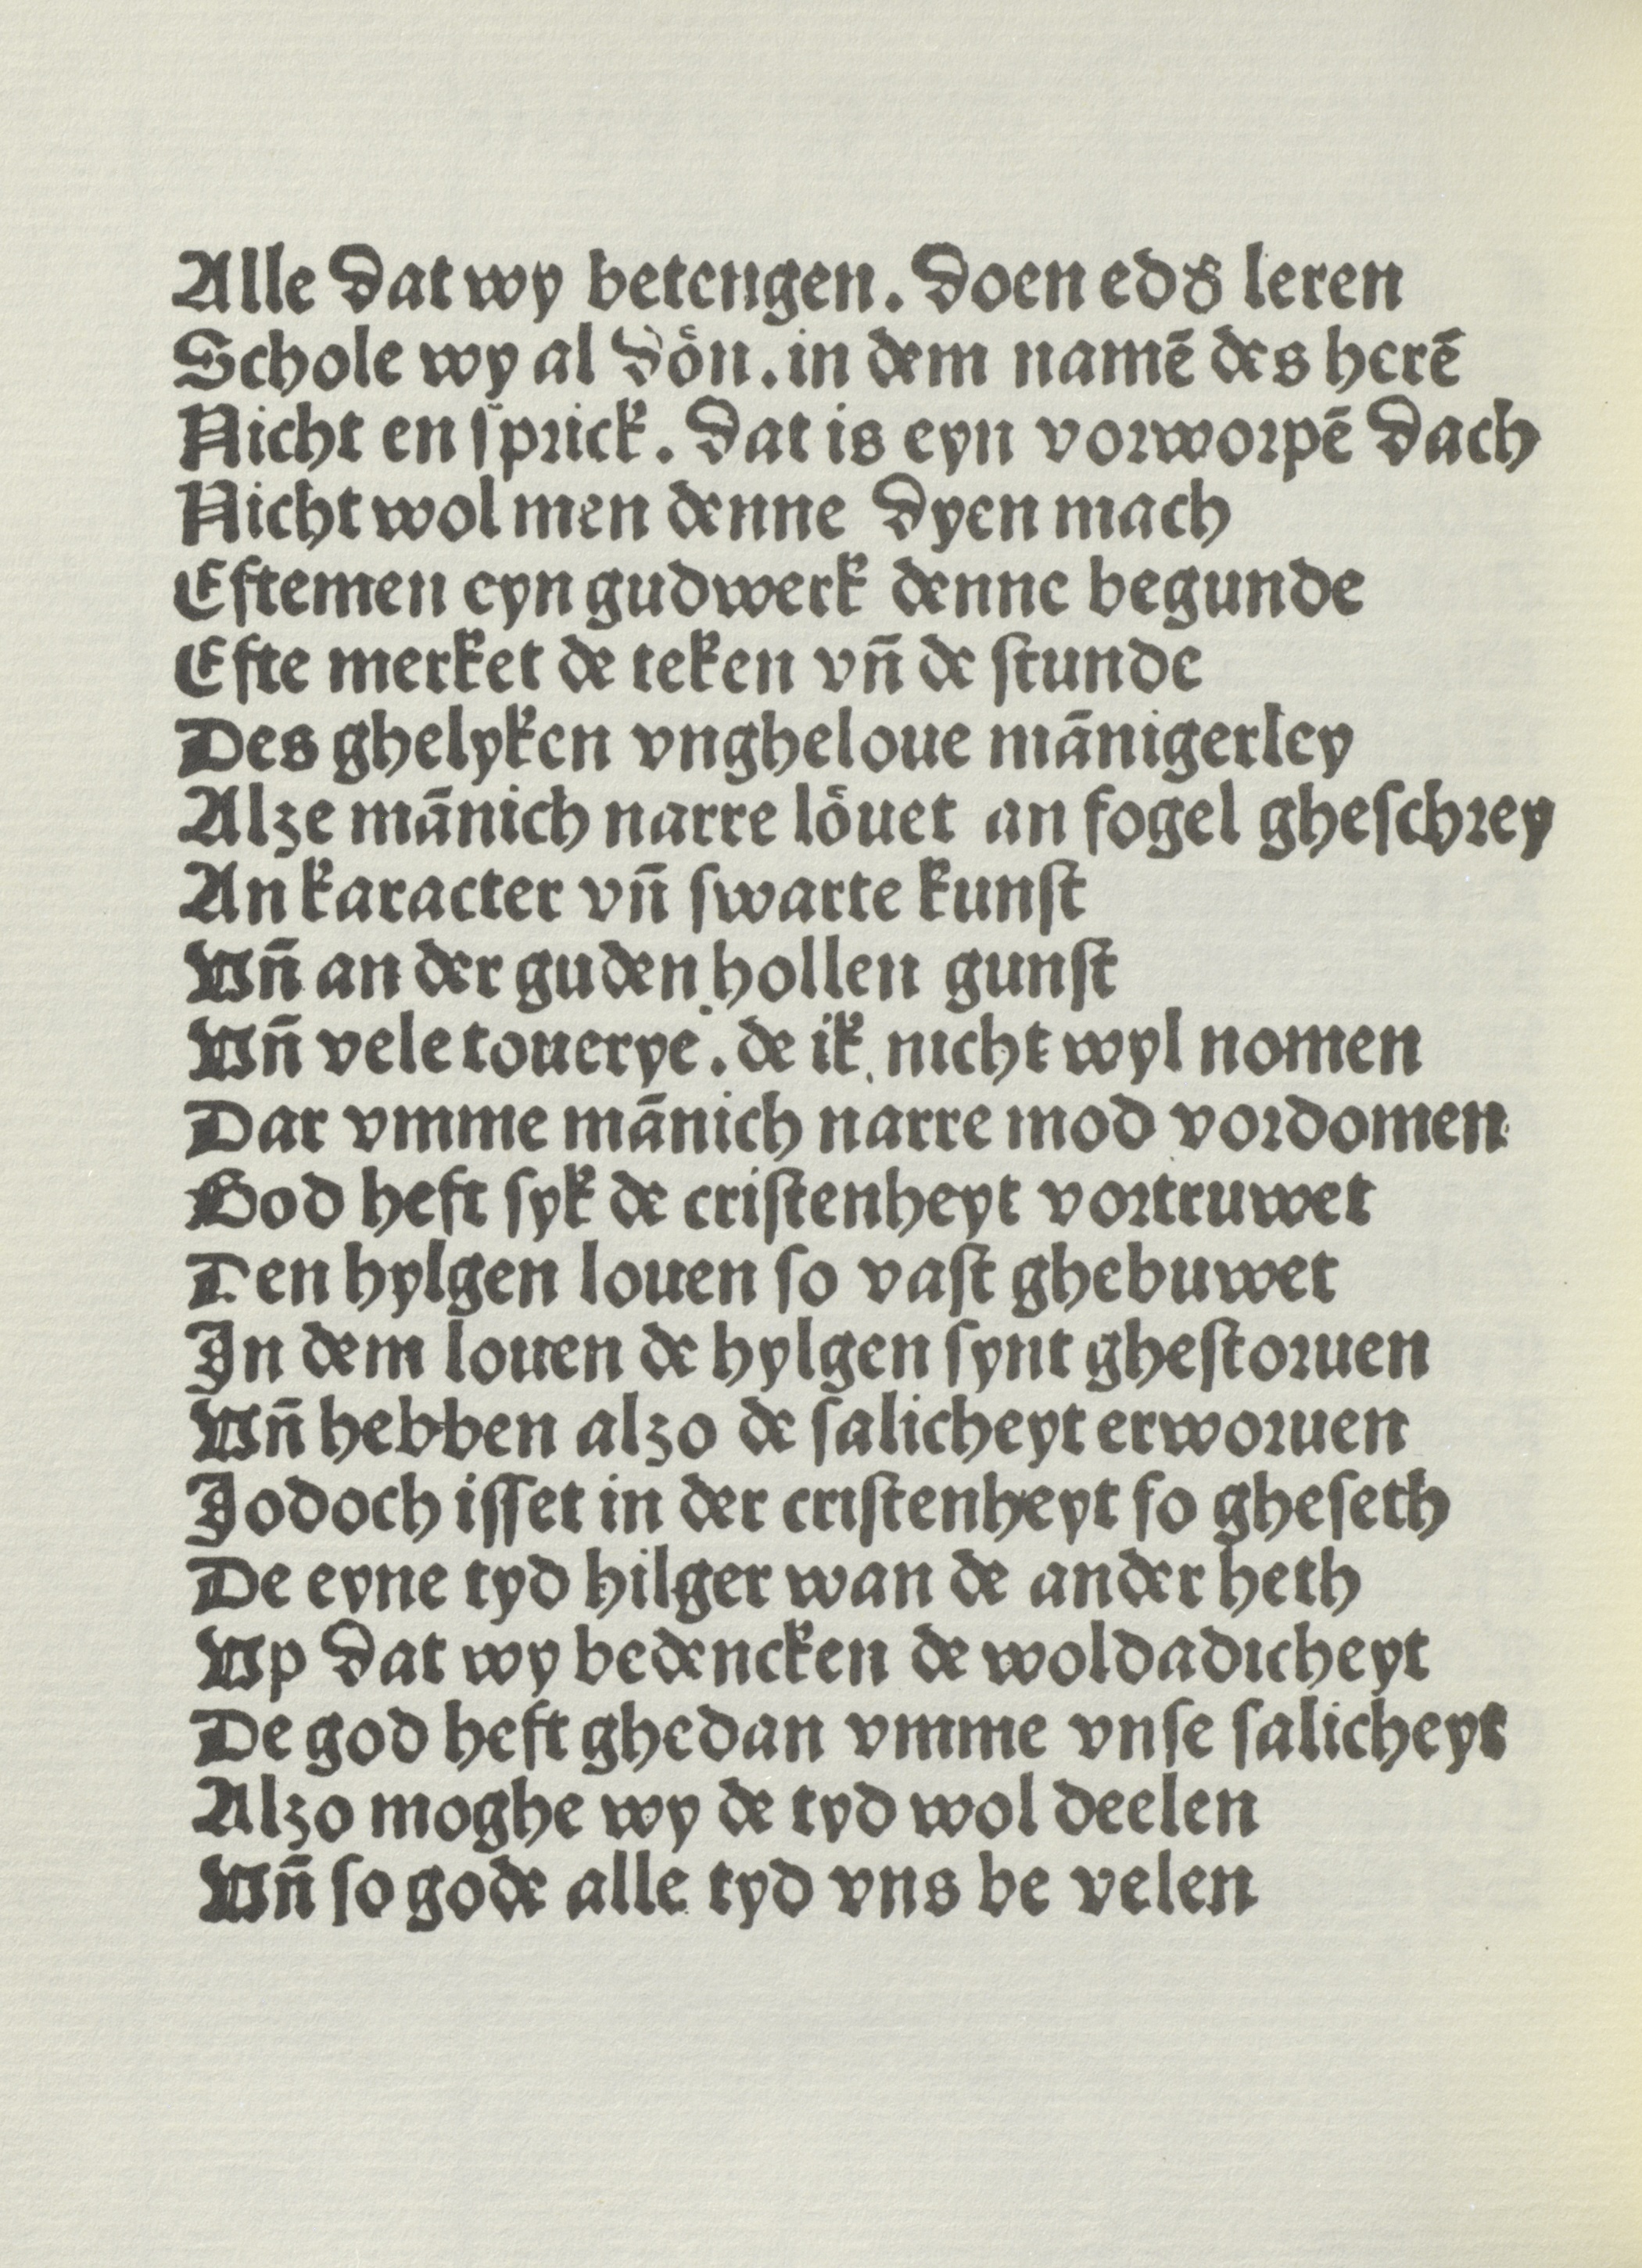 Alle dat wy betengen. doen eds leren
Schole wy al dön. in dem namē des herē
Nicht en ſprick. dat is eyn vorworpē dach
Nicht wol men denne dyen mach
Eftemen eyn gudwerk denne begunde
Efte merket de teken vn̄ de ſtunde
Des ghelyken vngheloue mānigerley
Alze mānich narre löuet an fogel gheſchrey
An karacter vn̄ ſwarte kunſt
Vn̄ an der guden hollen gunſt
Vn̄ vele touerye. de ik nicht wyl nomen
Dar vmme mānich narre mod vordomen
God heft ſyk de criſtenheyt vortruwet
Den hylgen louen ſo vaſt ghebuwet
In dem louen de hylgen ſynt gheſtoruen
Vn̄ hebben alzo de ſalicheyt erworuen
Jodoch iſſet in der criſtenheyt ſo gheſeth
De eyne tyd hilger wan de ander heth
Vp dat wy bedencken de woldadicheyt
De god heft ghedan vmme vnſe ſalicheyt
Alzo moghe wy de tyd wol deelen
Vn̄ ſo gode alle tyd vns be velen